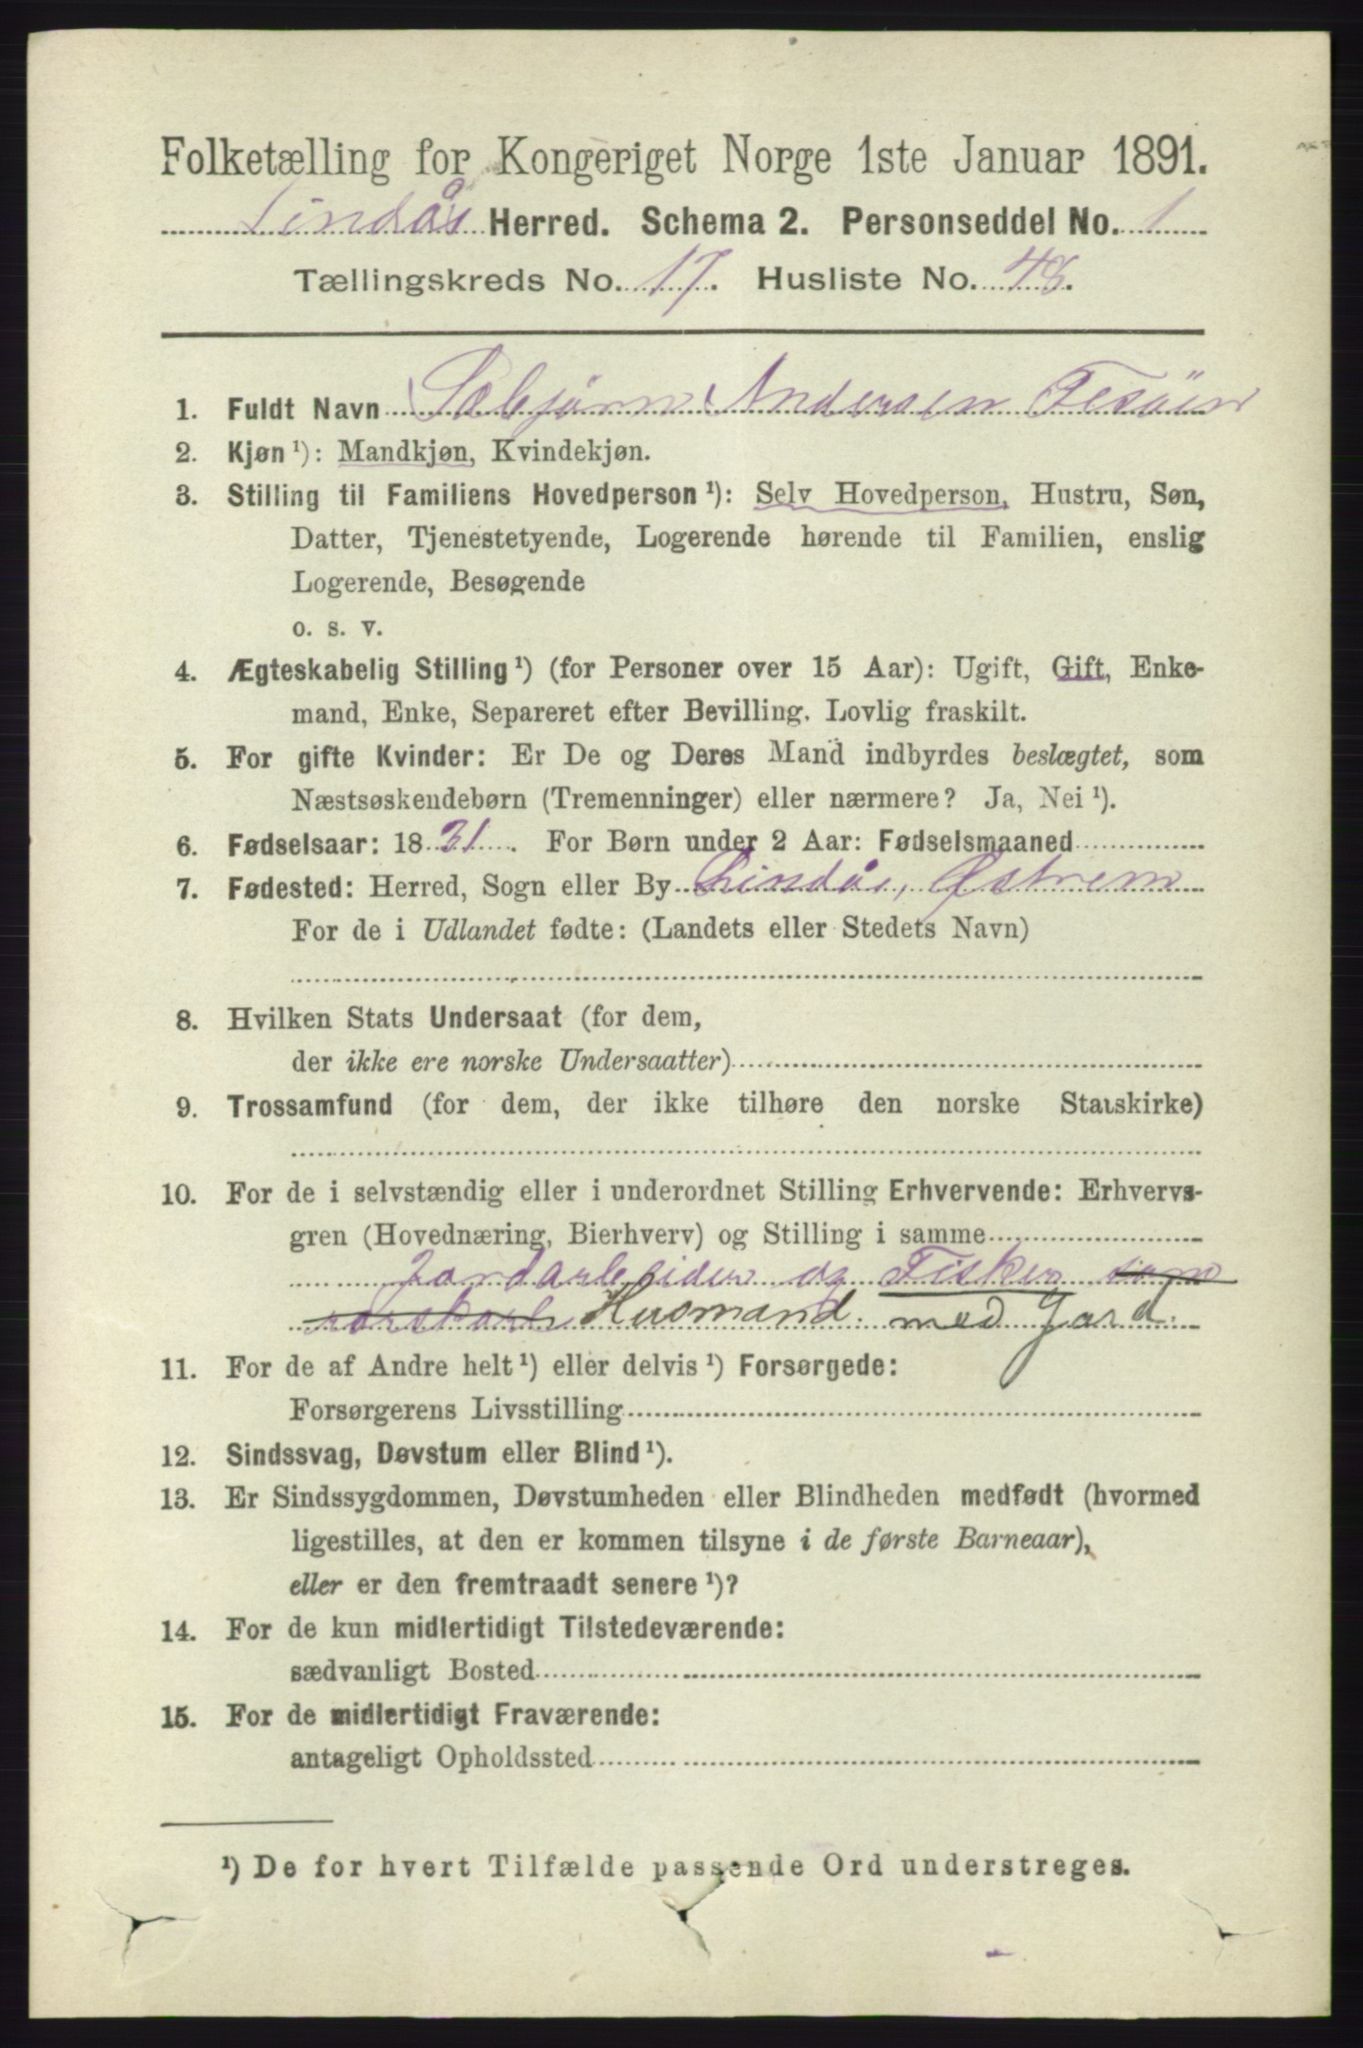 Folketælling for Kongeriget Norge 1ste Januar 1891.
Lindås Herred. Schema 2. Personseddel No. 1
Tællingskreds No. 17. Husliste No. 48.
1. Fuldt Navn Sæbjørn Andersen Fesöien
2. Kjøn ¹): Mandkjøn, Kvindekjøn.
3. Stilling til Familiens Hovedperson ¹): Selv Hovedperson, Hustru, Søn,
Datter, Tjenestetyende, Logerende hørende til Familien, enslig
Logerende, Besøgende
o. s. v.
4. Ægteskabelig Stilling ¹) (for Personer over 15 Aar): Ugift, Gift, Enke-
mand, Enke, Separeret efter Bevilling. Lovlig fraskilt.
5. For gifte Kvinder: Er De og Deres Mand indbyrdes beslægtet, som
Næstsøskendebørn (Tremenninger) eller nærmere? Ja, Nei ¹).
6. Fødselsaar: 1831. For Børn under 2 Aar: Fødselsmaaned
7. Fødested: Herred, Sogn eller By Lindås, Østrem
For de i Udlandet fødte: (Landets eller Stedets Navn)
8. Hvilken Stats Undersaat (for dem,
der ikke ere norske Undersaatter)
9. Trossamfund (for dem, der ikke tilhøre den norske Statskirke)
10. For de i selvstændig eller i underordnet Stilling Erhvervende: Erhvervs-
gren (Hovednæring, Bierhverv) og Stilling i samme
Jordarbeider og Fisker som
Husmand. med Jord.
11. For de af Andre helt ¹) eller delvis ¹) Forsørgede:
Forsørgerens Livsstilling
12. Sindssvag, Døvstum eller Blind ¹).
13. Er Sindssygdommen, Døvstumheden eller Blindheden medfødt (hvormed
ligestilles, at den er kommen tilsyne i de første Barneaar),
eller er den fremtraadt senere ¹)?
14. For de kun midlertidigt Tilstedeværende:
sædvanligt Bosted
15. For de midlertidigt Fraværende:
antageligt Opholdssted
¹) De for hvert Tilfælde passende Ord understreges.